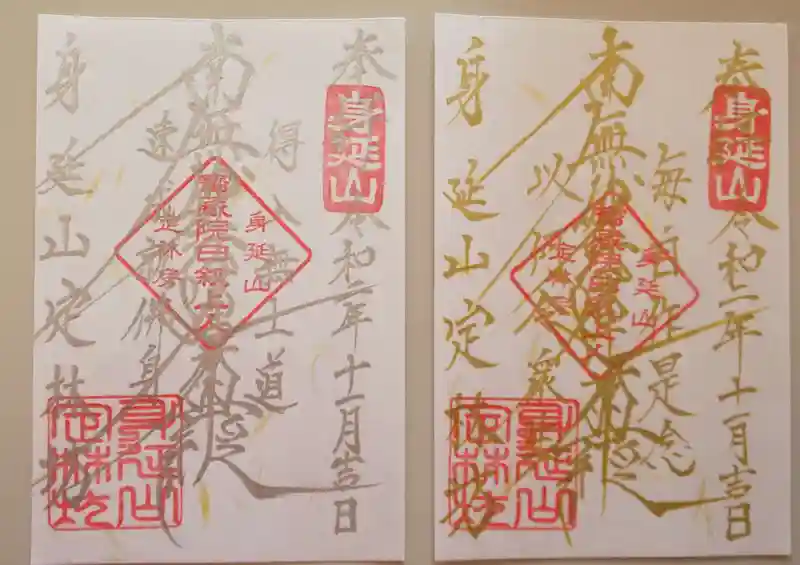 奉
身延山
令和二年十一月吉日
得入無上道
南無妙法蓮華経
速成就佛身
身延山
院日叙上人
定林房
身延山定林坊
身延山
定林坊
奉
身延山
令和二年十一月吉日
毎自作是念
南無妙法蓮華経
以何令衆生
身延山
定林房
身延山定林坊
身延山
定林坊